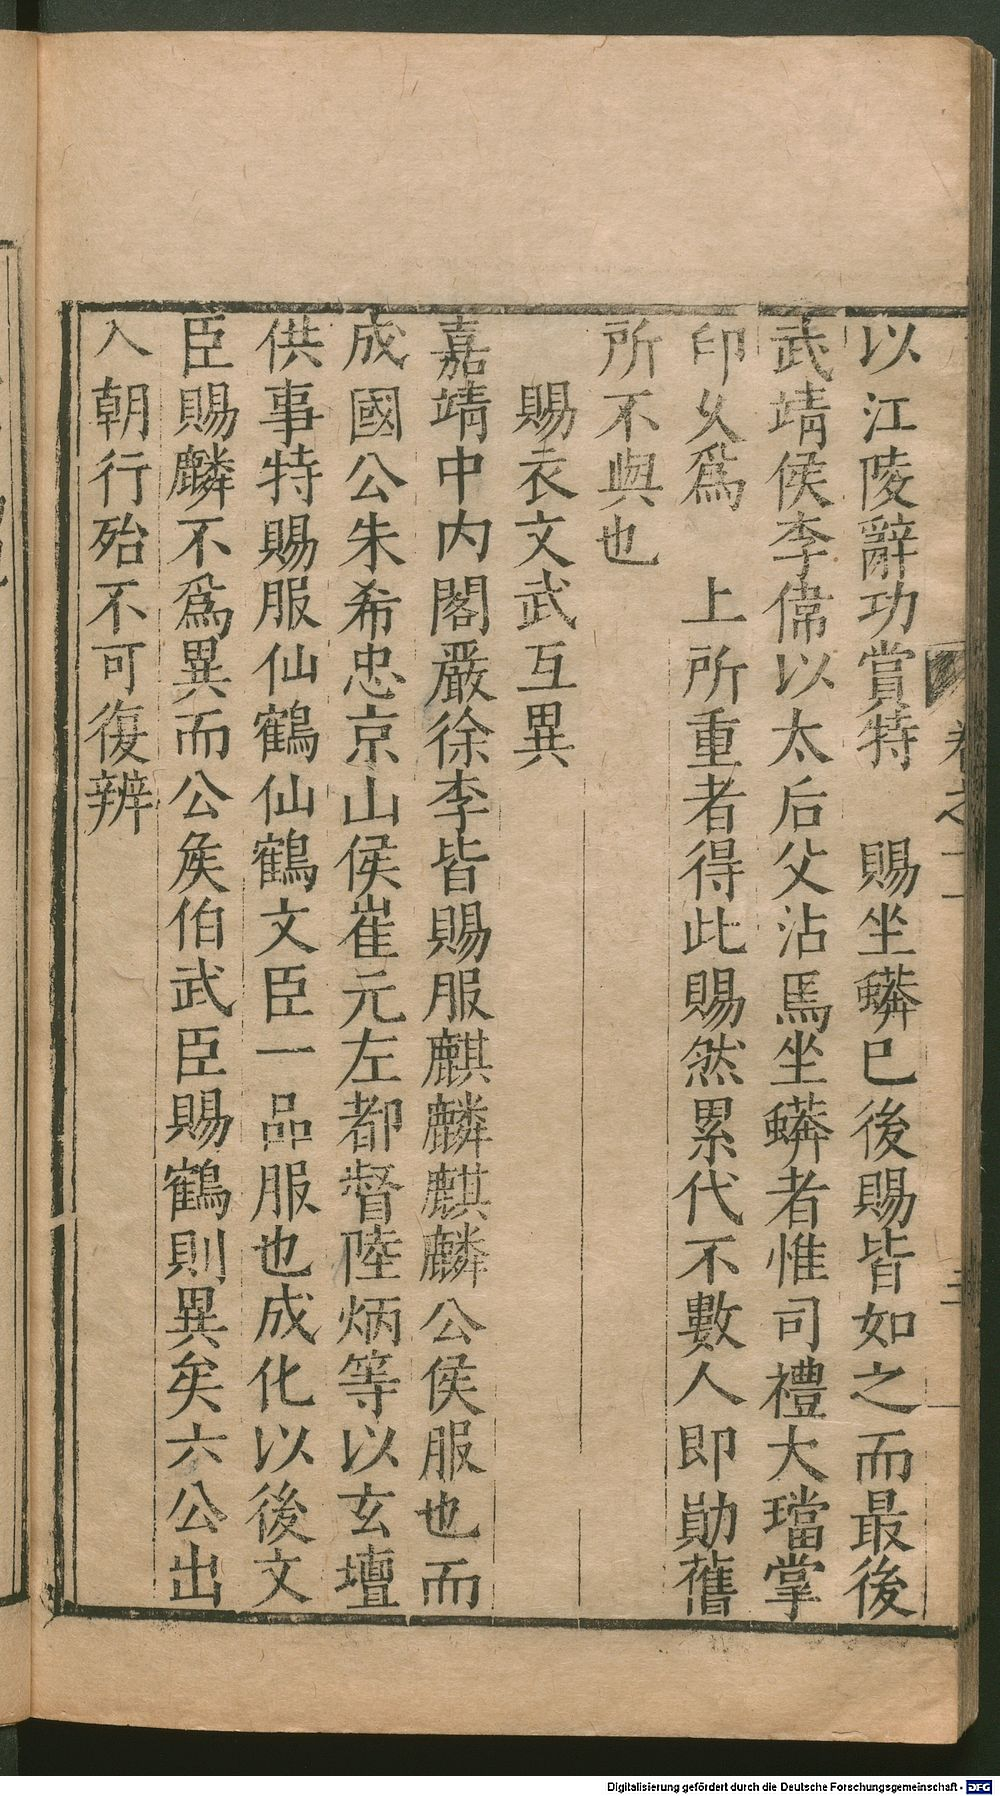 以江陵辭功賞特　賜坐蟒巳後賜皆如之而最後
武靖侯李偉以太后父沾焉坐蟒者惟司禮大璫掌
印乆爲　上所重者得此賜然累代不數人即勛舊
所不與也
賜衣文武互異
嘉靖中内閣嚴徐李皆賜服麒麟麒麟公侯服也而
成國公朱希忠京山侯崔元左都督陸炳等以玄壇
供事特賜服仙鶴仙鶴文臣一品服也成化以後文
臣賜麟不爲異而公矦伯武臣賜鶴則異矣六公出
入朝行殆不可復辨
卷之一
Digitalisierung gefördert durch die Deutsche Forschungsgemeinschaft - DFG